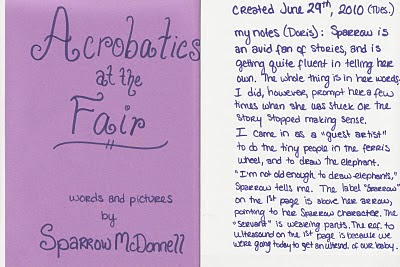 Acrobatics
at the
Fair
words and pictures
by
Sparrow McDonnell
created June 29th, 2010 (Tues.)
my notes (Doris): Sparrow is
an avid fan of stories, and is
getting quite fluent in telling her
own. The whole thing is in her words.
I did, however, prompt her a few
times when she was stuck or the
story stopped making sense.
I came in as a "guest artist"
to do the tiny people in the ferris
wheel, and to draw the elephant.
"I'm not old enough to draw elephants,"
Sparrow tells me. The label "Sparrow"
on the 1st page is above her arrow,
pointing to her Sparrow character. The
"servant" is wearing pants. The ref. to
ultrasound on the 1st page is because we
were going today to get an ultrasnd. of our baby.